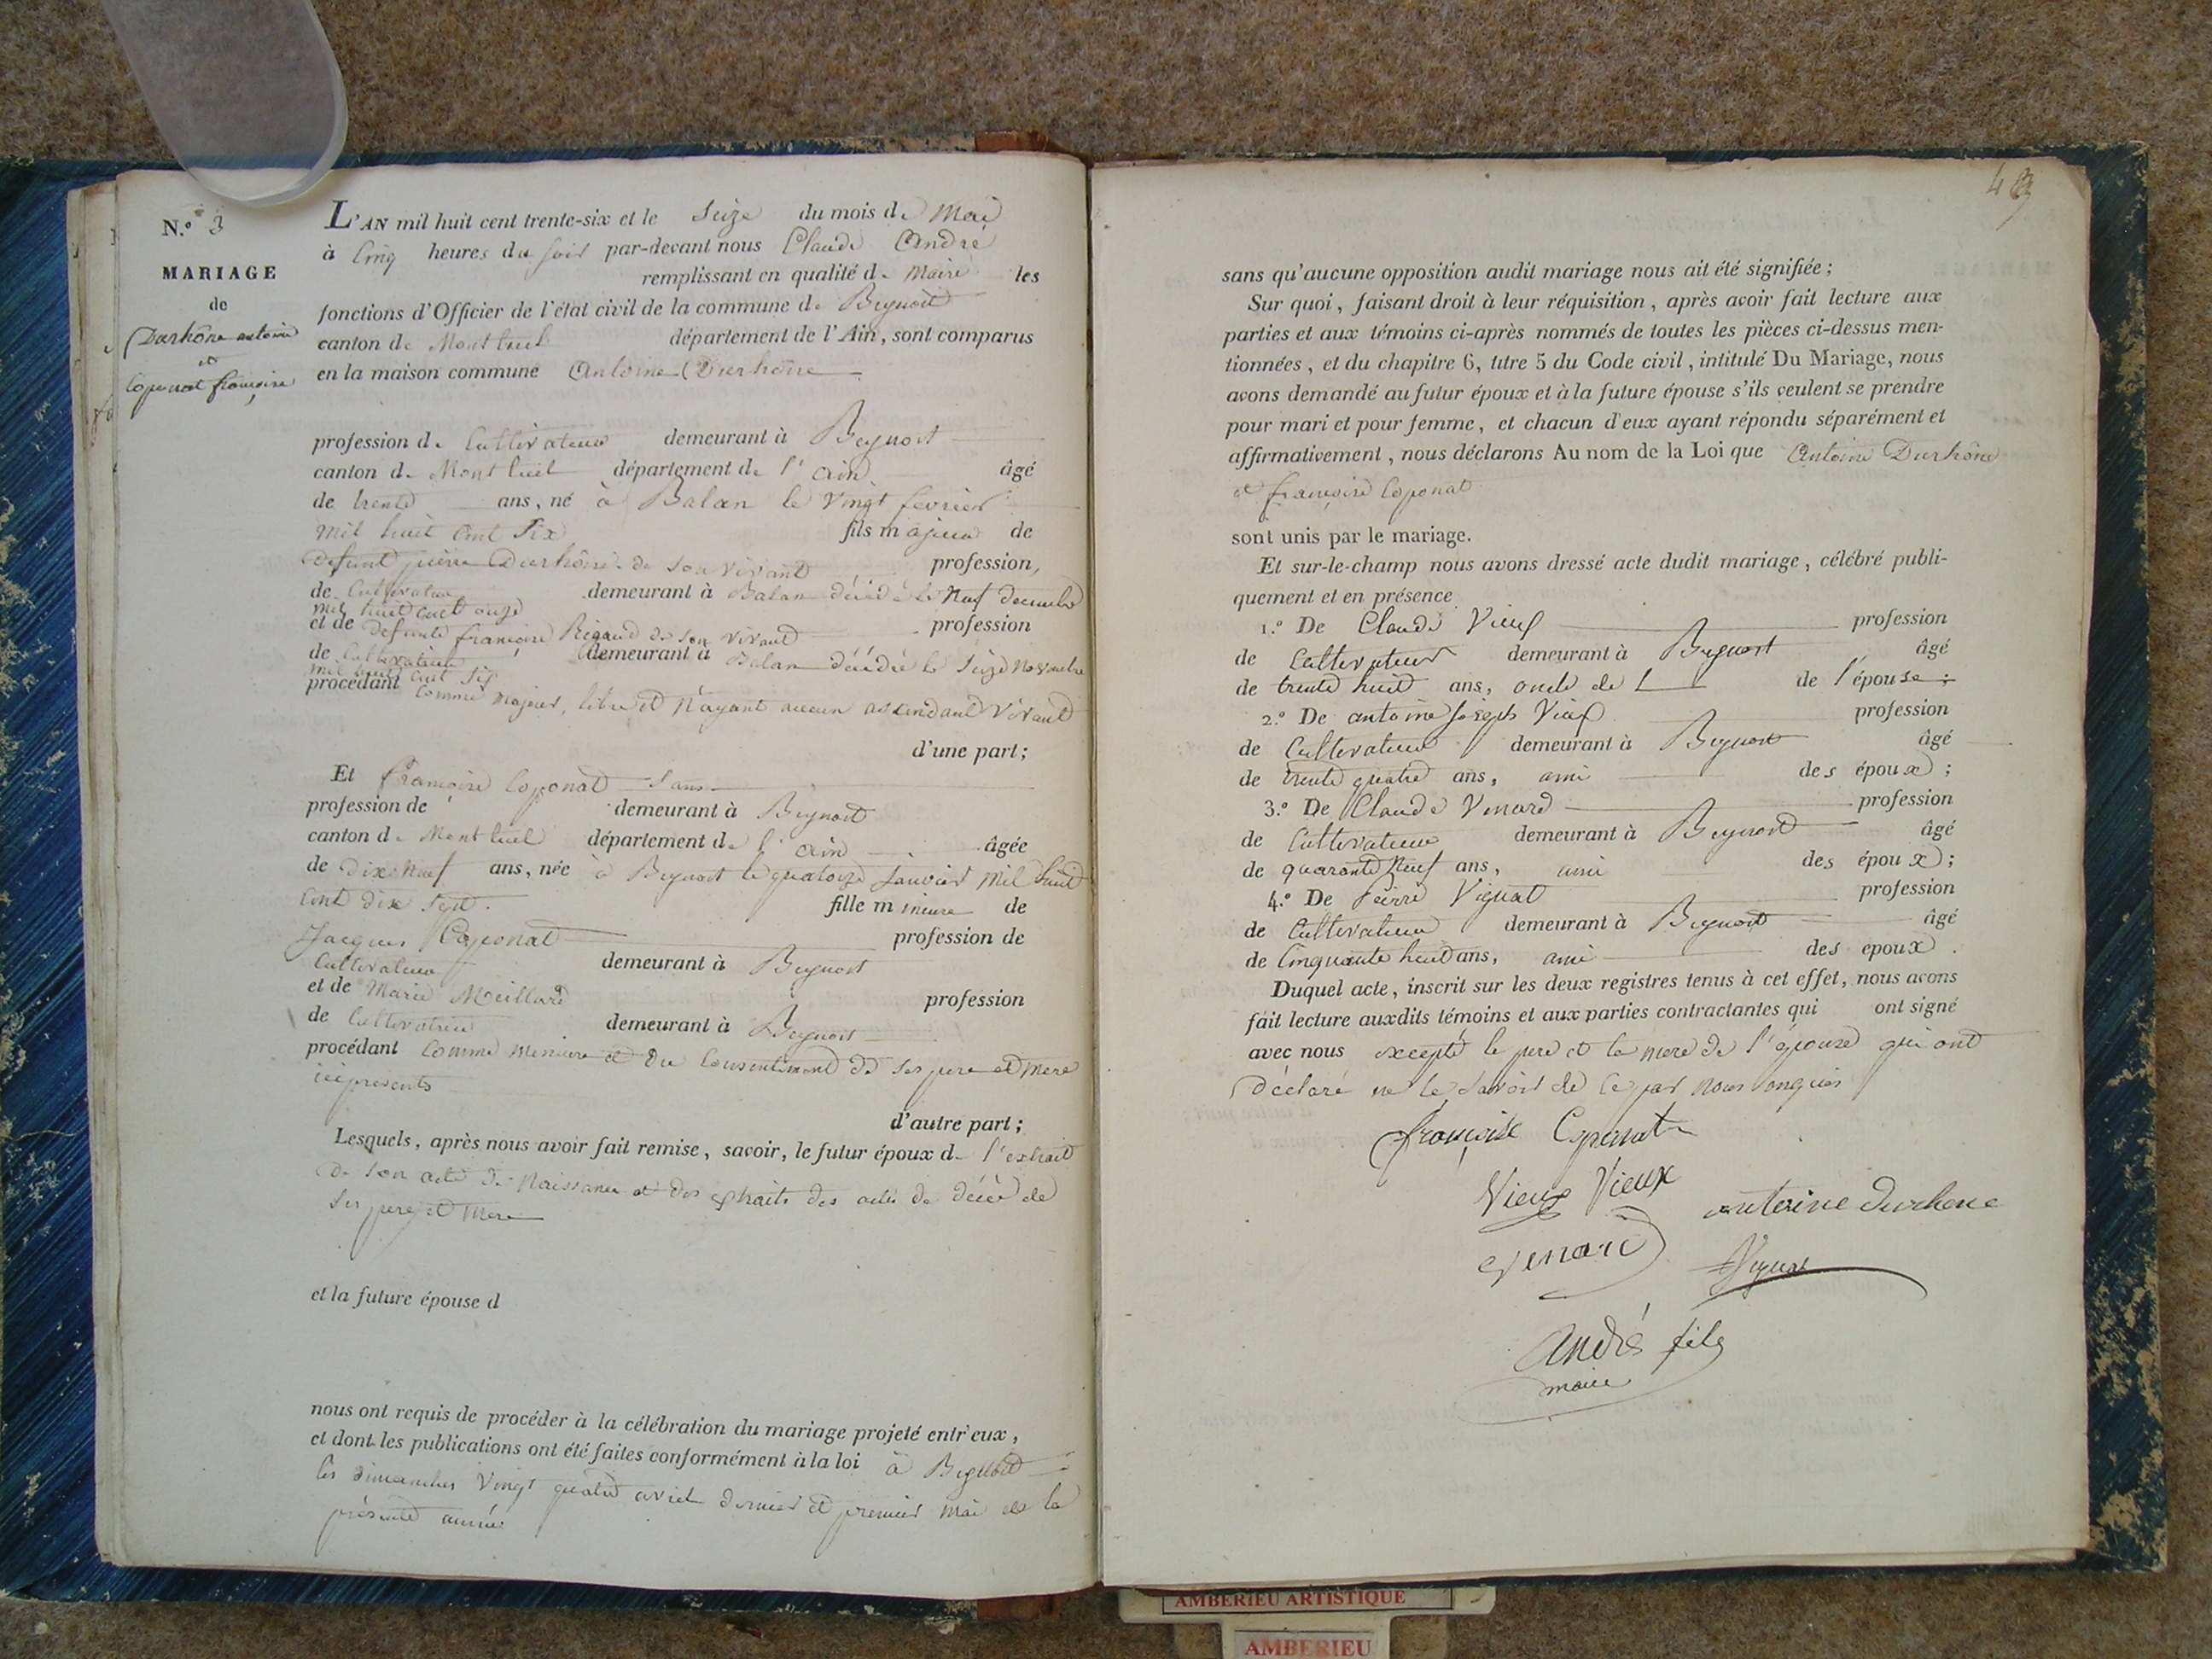 N.º 3
MARIAGE
de
Durhône antoine
et
Coponat françoise
L'AN mil huit cent trente-six et le Seize du mois de Mai
à Cinq heures du soir par-devant nous Claude André
remplissant en qualité de Maire les
fonctions d'Officier de l'état civil de la commune de Beynost
canton de Mont luel département de l'Ain, sont comparus
en la maison commune Antoine Durhône
profession de Cultivateur demeurant à Beynost
canton de Mont luel département de l' ain âgé
de trente ans, né à Balan le Vingt fevrier
mil huit Cent Six fils majeur de
defunt pierre Durhône de son vivant profession,
de Cultivateur demeurant à Balan décédé le Neuf decembre
mil huit cent onze
et de defunte françoise Rigaud de son vivant profession
de Cultivatrice demeurant à Balan décédée le Seize Novembre
mil huit cent six
procédant Comme majeur, libre et n'ayant aucun ascendant Vivant
d'une part;
Et françoise Coponat Sans
profession de demeurant à Beynost
canton de Mont luel département de l' ain âgée
de Dix Neuf ans, née à Beynost le quatorze Janvier Mil huit
Cent dix Sept. fille mineure de
Jacques Coponat profession de
Cultivateur demeurant à Beynost
et de Marie Meillard profession
de Cultivatrice demeurant à Beynost
procédant Comme Mineure et du Consentement de Ses pere et mere
ici présents
d'autre part;
Lesquels, après nous avoir fait remise, savoir, le futur époux de l'extrait
de Son acte de Naissance et des extraits des actes de décès de
Ses pere et Mere
et la future épouse d
nous ont requis de procéder à la célébration du mariage projeté entr'eux,
et dont les publications ont été faites conformément à la loi à Beynost
les dimanches Vingt quatre avril dernier et premier Mai de la
présente année
4
sans qu'aucune opposition audit mariage nous ait été signifiée;
Sur quoi, faisant droit à leur réquisition, après avoir fait lecture aux
parties et aux témoins ci-après nommés de toutes les pièces ci-dessus men-
tionnées, et du chapitre 6, titre 5 du Code civil, intitulé Du Mariage, nous
avons demandé au futur époux et à la future épouse s'ils veulent se prendre
pour mari et pour femme, et chacun d'eux ayant répondu séparément et
affirmativement, nous déclarons Au nom de la Loi que Antoine Durhône
et françoise Coponat
sont unis par le mariage.
Et sur-le-champ nous avons dressé acte dudit mariage, célébré publi-
quement et en présence
1.º De Claude Vieux profession
de Cultivateur demeurant à Beynost âgé
de trente huit ans, oncle de l'épouse;
2.º De antoine Joseph Vieux profession
de Cultivateur demeurant à Beynost âgé
de trente quatre ans, ami des époux;
3.º De Claude Venard profession
de Cultivateur demeurant à Beynost âgé
de quarante Neuf ans, ami des époux;
4.º De Pierre Vignat profession
de Cultivateur demeurant à Beynost âgé
de Cinquante huit ans, ami des epoux.
Duquel acte, inscrit sur les deux registres tenus à cet effet, nous avons
fait lecture auxdits témoins et aux parties contractantes qui ont signé
avec nous excepté le pere et la mere de l'épouse qui ont
déclaré ne le Savoir de Ce par Nous enquis
françoise Coponat
Vieux Vieux
antoine durhone
Venard
André fils
maire
AMBERIEU ARTISTIQUE
AMBERIEU